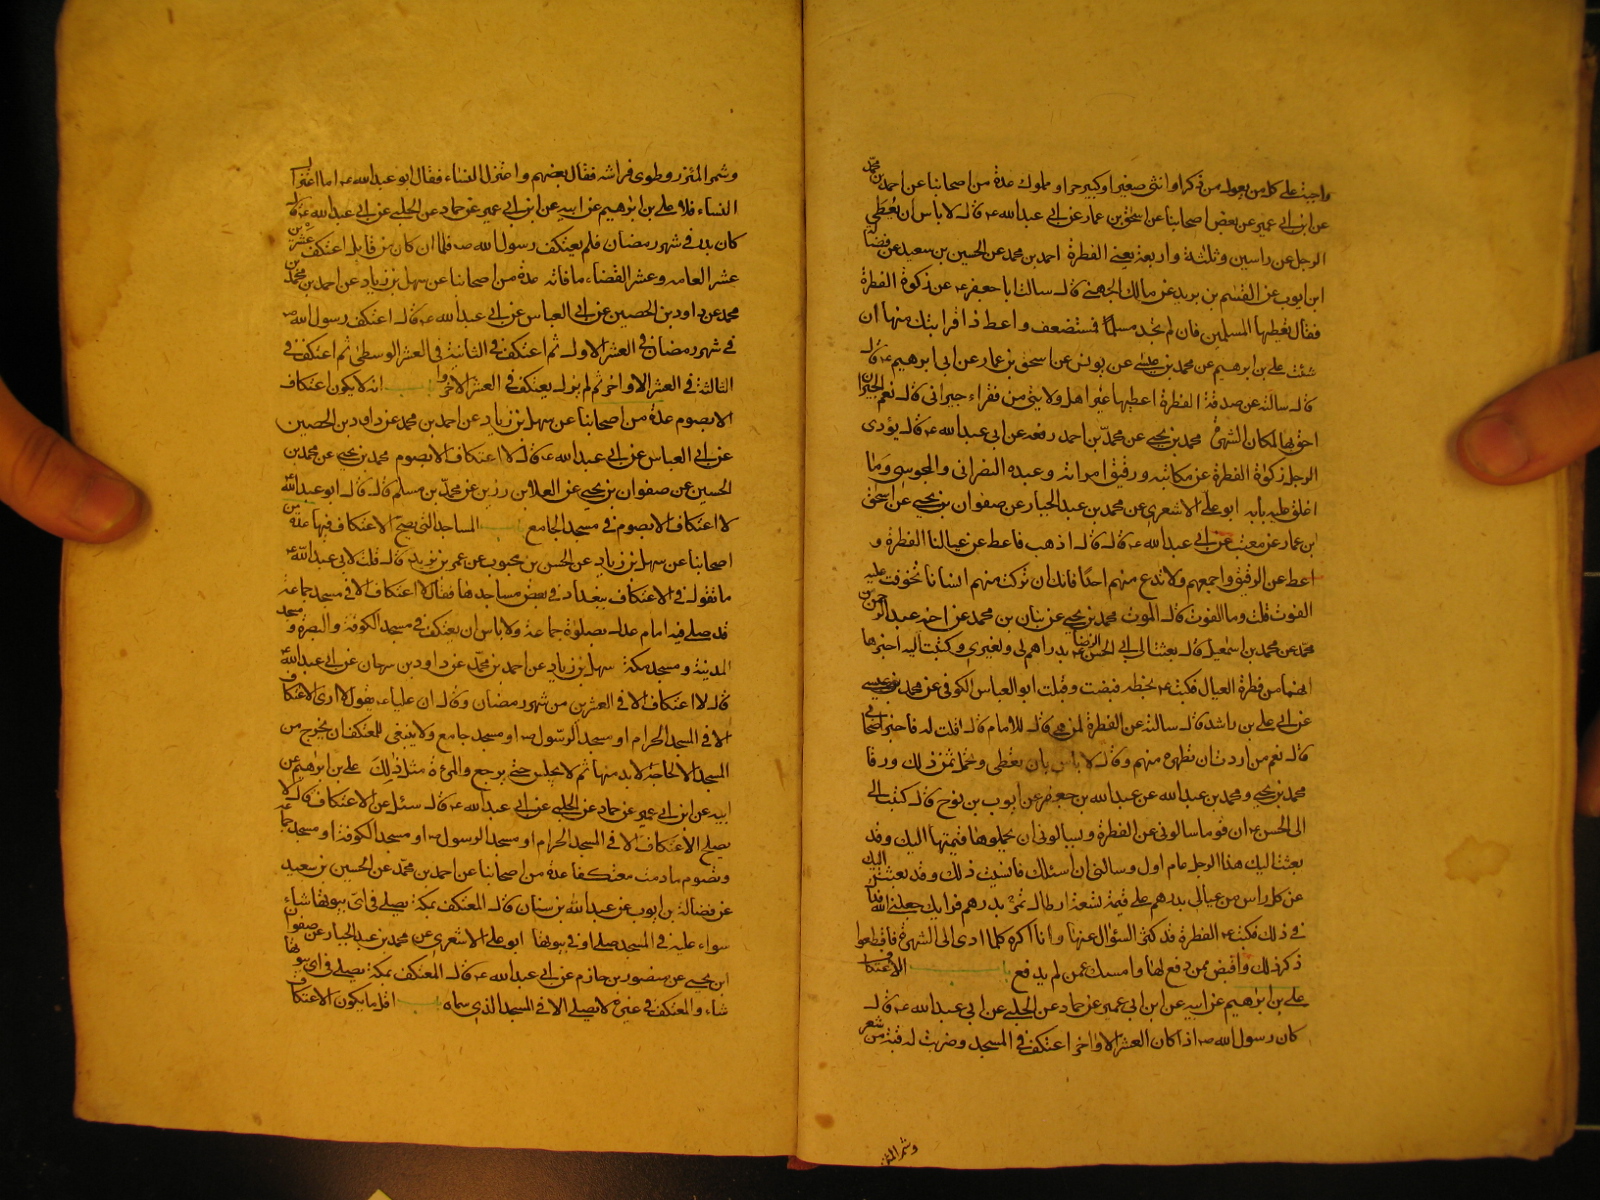 واجبة على كل من يعول من ذكر او انثى صغير او كبير حر او مملوك عدة من اصحابنا عن احمد بن محمد
عن ابن ابي عمير عن بعض اصحابنا عن اسحق بن عمار عن ابي عبد الله ع قال لا باس ان يعطي
الرجل عن راسين وثلثة واربعة يعني الفطرة احمد بن محمد عن الحسين بن سعيد عن فضالة
ابن ايوب عن القسم بن بريد عن مالك الجهني قال سالت ابا جعفر ع عن زكوة الفطرة
فقال تعطيها المسلمين فان لم تجد مسلما فمستضعف واعط ذا قرابتك منها ان
شئت علي بن ابرهيم عن محمد بن عيسى عن يونس عن اسحق بن عمار عن ابي ابرهيم ع قال
قال سالته عن صدقة الفطرة اعطيها غير اهل ولايتي من فقراء جيراني قال نعم الجيران
احق بها لمكان الشهرة محمد بن يحيى عن محمد بن احمد رفعه عن ابي عبد الله ع قال يؤدى
الرجل زكوة الفطرة عن مكاتبه ورقيق امراته وعبده النصراني والمجوسي وما
اغلق عليه بابه ابو علي الاشعري عن محمد بن عبد الجبار عن صفوان بن يحيى عن اسحق
ابن عمار عن معتب عن ابي عبد الله ع قال قال اذهب فاعط عن عيالنا الفطرة و
اعط عن الرقيق واجمعهم ولا تدع منهم احدا فانك ان تركت منهم انسانا تخوفت عليه
الفوت قلت وما الفوت قال الموت محمد بن يحيى عن بنان بن محمد عن اخيه عبد الرحمن
محمد عن محمد بن اسمعيل قال بعثت الى ابي الحسن الرضا ع بدراهم لي ولغيري وكتبت اليه اخبره ها
انها من فطرة العيال فكتب ع بخطه قبضت وقبلت ابو العباس الكوفي عن محمد بن عيسى
عن ابي علي بن راشد قال سالته عن الفطرة لمن هي قال للامام قال قلت له فاخبر اصحابي
قال نعم من اردت ان تطهره منهم وقال لا باس بان تعطي وتحمل ثمن ذلك ورقا
محمد بن يحيى ومحمد بن عبد الله عن عبد الله بن جعفر عن ايوب بن نوح قال كتبت الى
ابي الحسن ع ان قوما سالوني عن الفطرة ويسالوني ان يحملوها قيمتها اليك وقد
بعثت اليك هذا الرجل عام اول وسالني ان اسئلك فانسيت ذلك وقد بعثت اليك
عن كل راس من عيالي بدرهم على قيمة تسعة ارطال تمر بدرهم فرايك جعلني الله فداك
في ذلك فكتب ع الفطرة قد كثر السؤال عنها وانا اكره كلما ادى الى الشهرة فاقطعوا
ذكر ذلك واقبض ممن دفع لها وامسك عمن لم يدفع باب الاعتكاف
علي بن ابرهيم عن ابيه عن ابن ابي عمير عن حماد عن الحلبي عن ابي عبد الله ع قال
كان رسول الله ص اذا كان العشر الاواخر اعتكف في المسجد وضربت له قبة من شعر
وشمر المئزر
وشمر المئزر وطوى فراشه فقال بعضهم واعتزل النساء فقال ابو عبد الله ع اما اعتزال
النساء فلا علي بن ابرهيم عن ابيه عن ابن ابي عمير عن حماد عن الحلبي عن ابي عبد الله ع قال
كان بدر في شهر رمضان فلم يعتكف رسول الله ص فلما ان كان من قابل اعتكف عشرين
عشر العامه وعشر القضاء ما فاته عدة من اصحابنا عن سهل بن زياد عن احمد بن محمد
محمد عن داود بن الحصين عن ابي العباس عن ابي عبد الله ع قال اعتكف رسول الله ص
في شهر رمضان في العشر الاول ثم اعتكف في الثانية في العشر الوسطى ثم اعتكف في
الثالثة في العشر الاواخر ثم لم يزل يعتكف في العشر الاواخر باب انه لا يكون اعتكاف
الا بصوم عدة من اصحابنا عن سهل بن زياد عن احمد بن محمد عن داود بن الحصين
عن ابي العباس عن ابي عبد الله ع قال لا اعتكاف الا بصوم محمد بن يحيى عن محمد بن
الحسين عن صفوان بن يحيى عن العلا بن رزين عن محمد بن مسلم قال قال ابو عبد الله ع
لا اعتكاف الا بصوم في مسجد الجامع باب المساجد التي يصح الاعتكاف فيها عدة من
اصحابنا عن سهل بن زياد عن الحسن بن محبوب عن عمر بن يزيد قال قلت لابي عبد الله ع
ما تقول في الاعتكاف ببغداد في بعض مساجدها فقال لا اعتكاف الا في مسجد جماعة
قد صلى فيه امام عدل بصلوة جماعة ولا باس ان يعتكف في مسجد الكوفة والبصرة ومسجد
المدينة ومسجد مكة سهل بن زياد عن احمد بن محمد عن داود بن سرحان عن ابي عبد الله ع
قال لا اعتكاف الا في العشرين من شهر رمضان وقال ان عليا ع يقول لا ارى الاعتكاف
الا في المسجد الحرام او مسجد الرسول ص او مسجد جامع ولا ينبغي للمعتكف ان يخرج من
المسجد الا لحاجة لا بد منها ثم لا يجلس حتى يرجع والمرءة مثل ذلك علي بن ابرهيم عن
ابيه عن ابن ابي عمير عن حماد عن الحلبي عن ابي عبد الله ع قال سئل عن الاعتكاف قال لا
يصلح الاعتكاف الا في المسجد الحرام او مسجد الرسول ص او مسجد الكوفة او مسجد جماعة
وتصوم ما دمت معتكفا عدة من اصحابنا عن احمد بن محمد عن الحسين بن سعيد
عن فضالة بن ايوب عن عبد الله بن سنان قال المعتكف بمكة يصلي في اي بيوتها شاء
سواء عليه في المسجد صلى او في بيوتها ابو علي الاشعري عن محمد بن عبد الجبار عن صفوان
ابن يحيى عن منصور بن حازم عن ابي عبد الله ع قال المعتكف بمكة يصلي في اي بيوتها
شاء والمعتكف في غيره لا يصلي الا في المسجد الذي سماه باب اقل ما يكون الاعتكاف